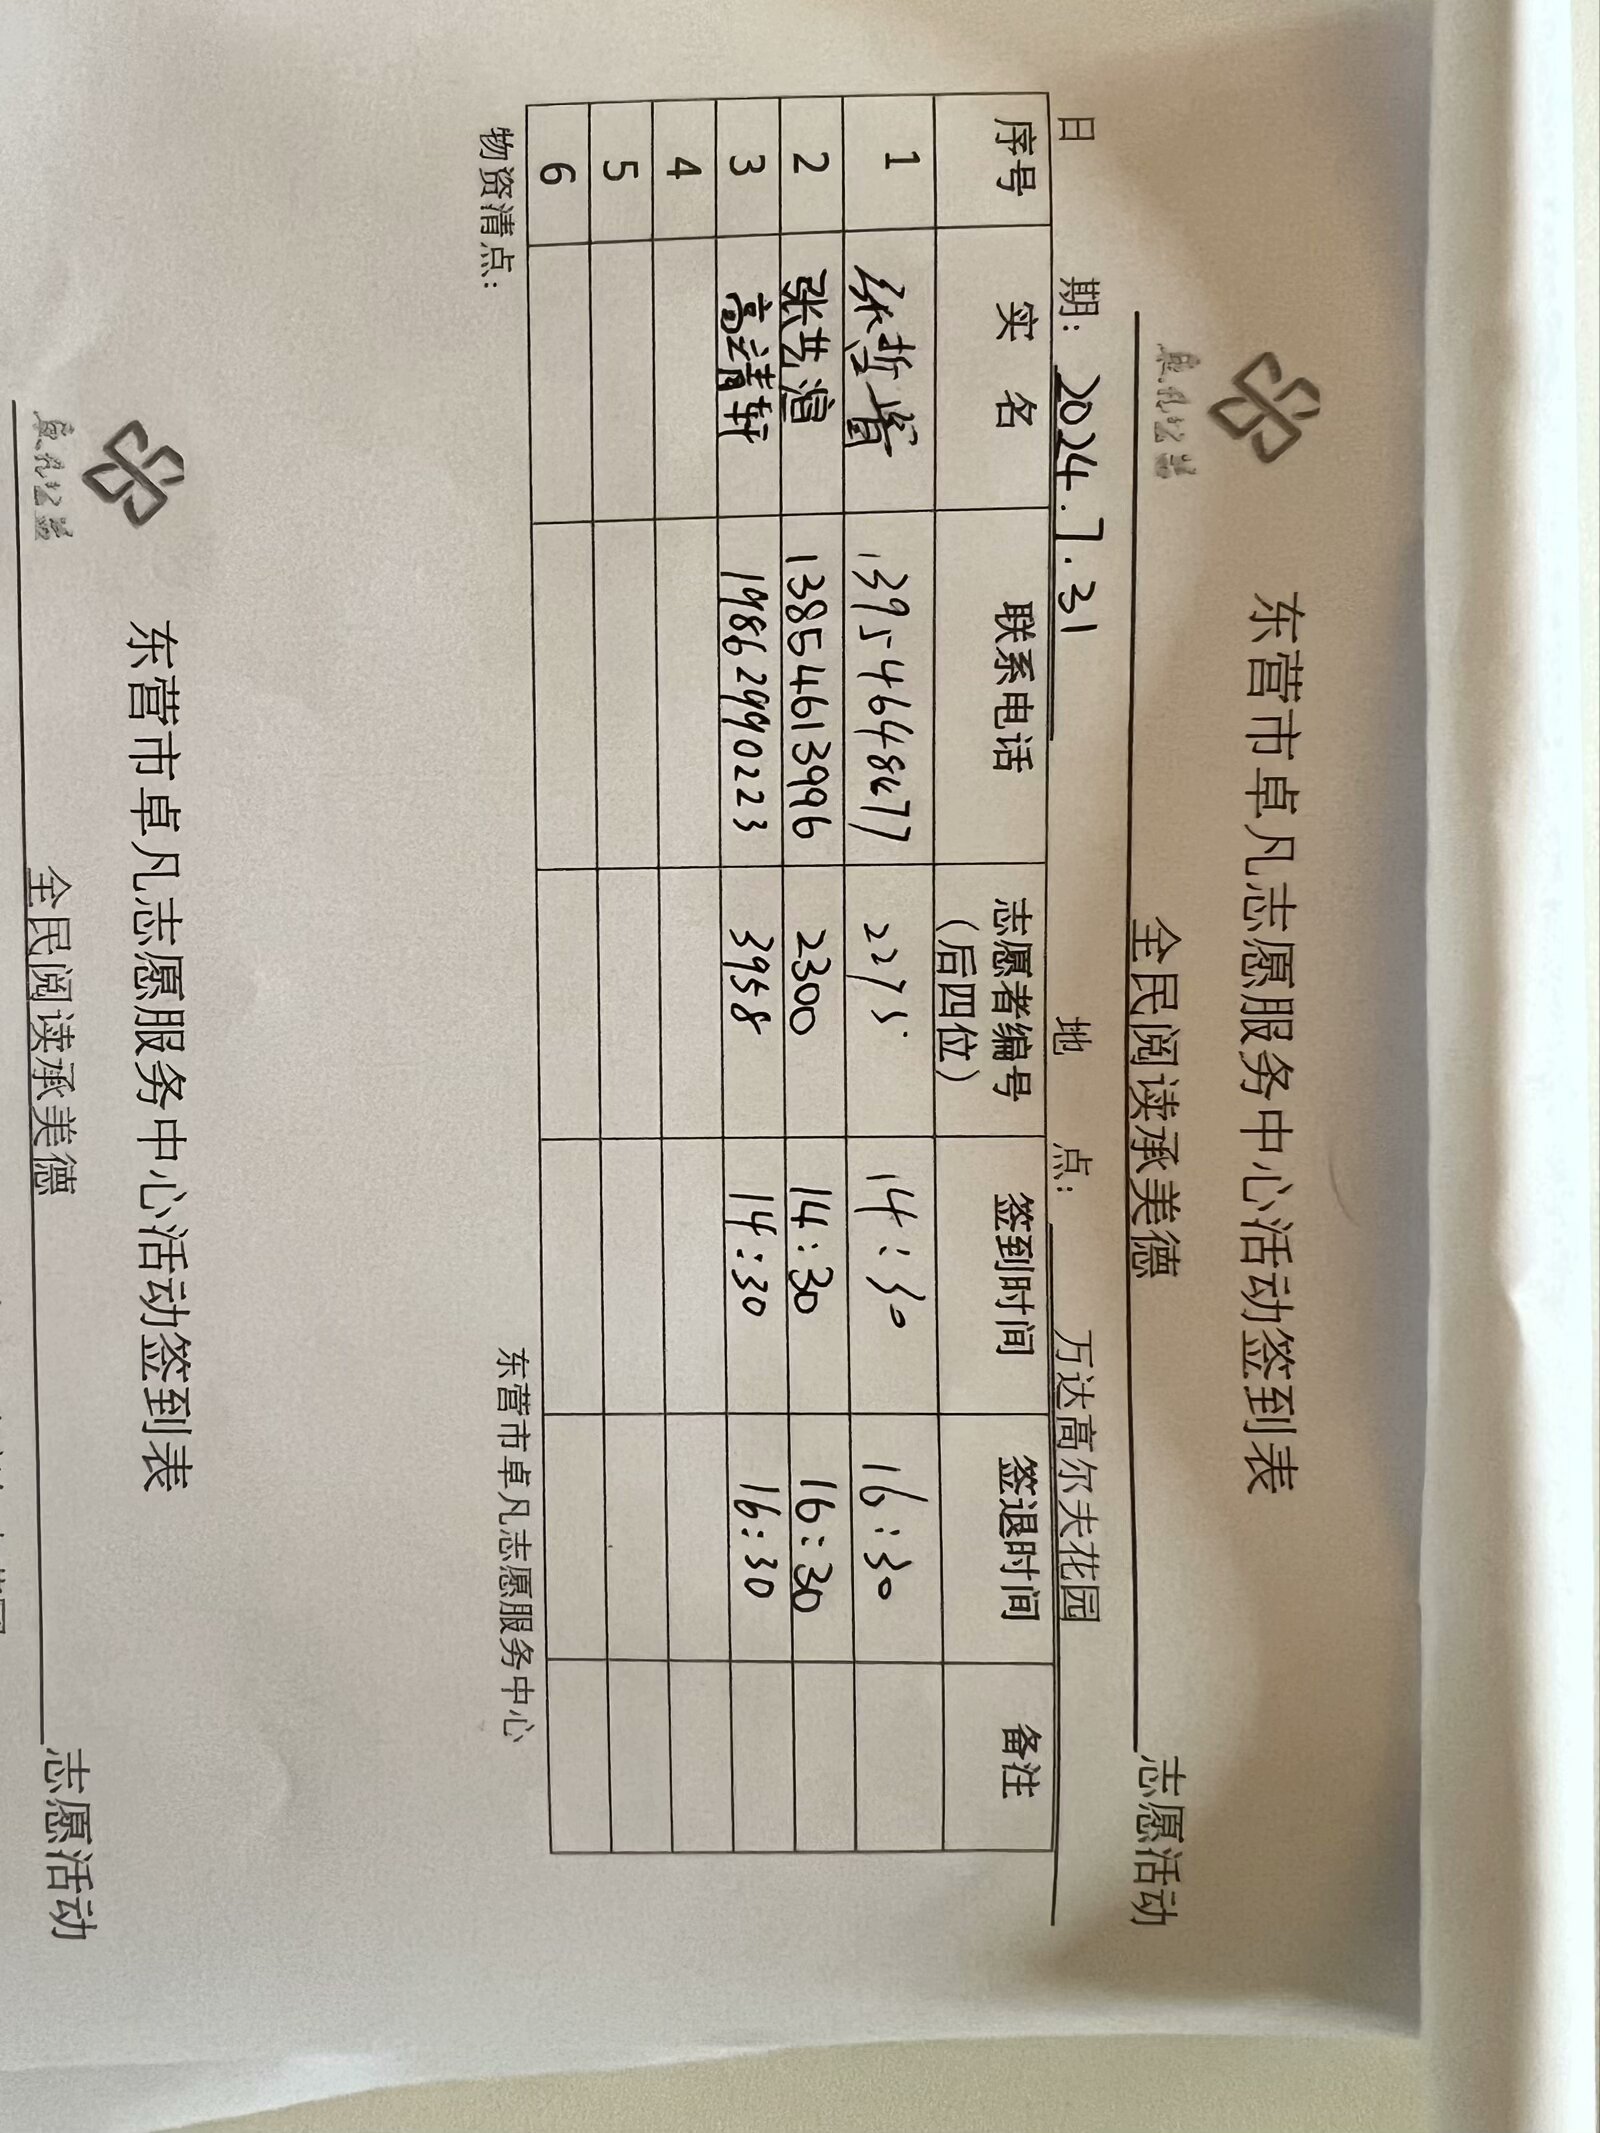 卓凡公益
东营市卓凡志愿服务中心活动签到表
全民阅读承美德 志愿活动
日 期: 2024.7.31 地 点: 万达高尔夫花园
序号 实 名 联系电话 志愿者编号(后四位) 签到时间 签退时间 备注
1 张哲 14:30 16:30
2 张艺渲 13854613996 2300 14:30 16:30
3 高靖轩 19862990223 3958 14:30 16:30
4
5
6
物资清点: 东营市卓凡志愿服务中心
卓凡公益
东营市卓凡志愿服务中心活动签到表
全民阅读承美德 志愿活动